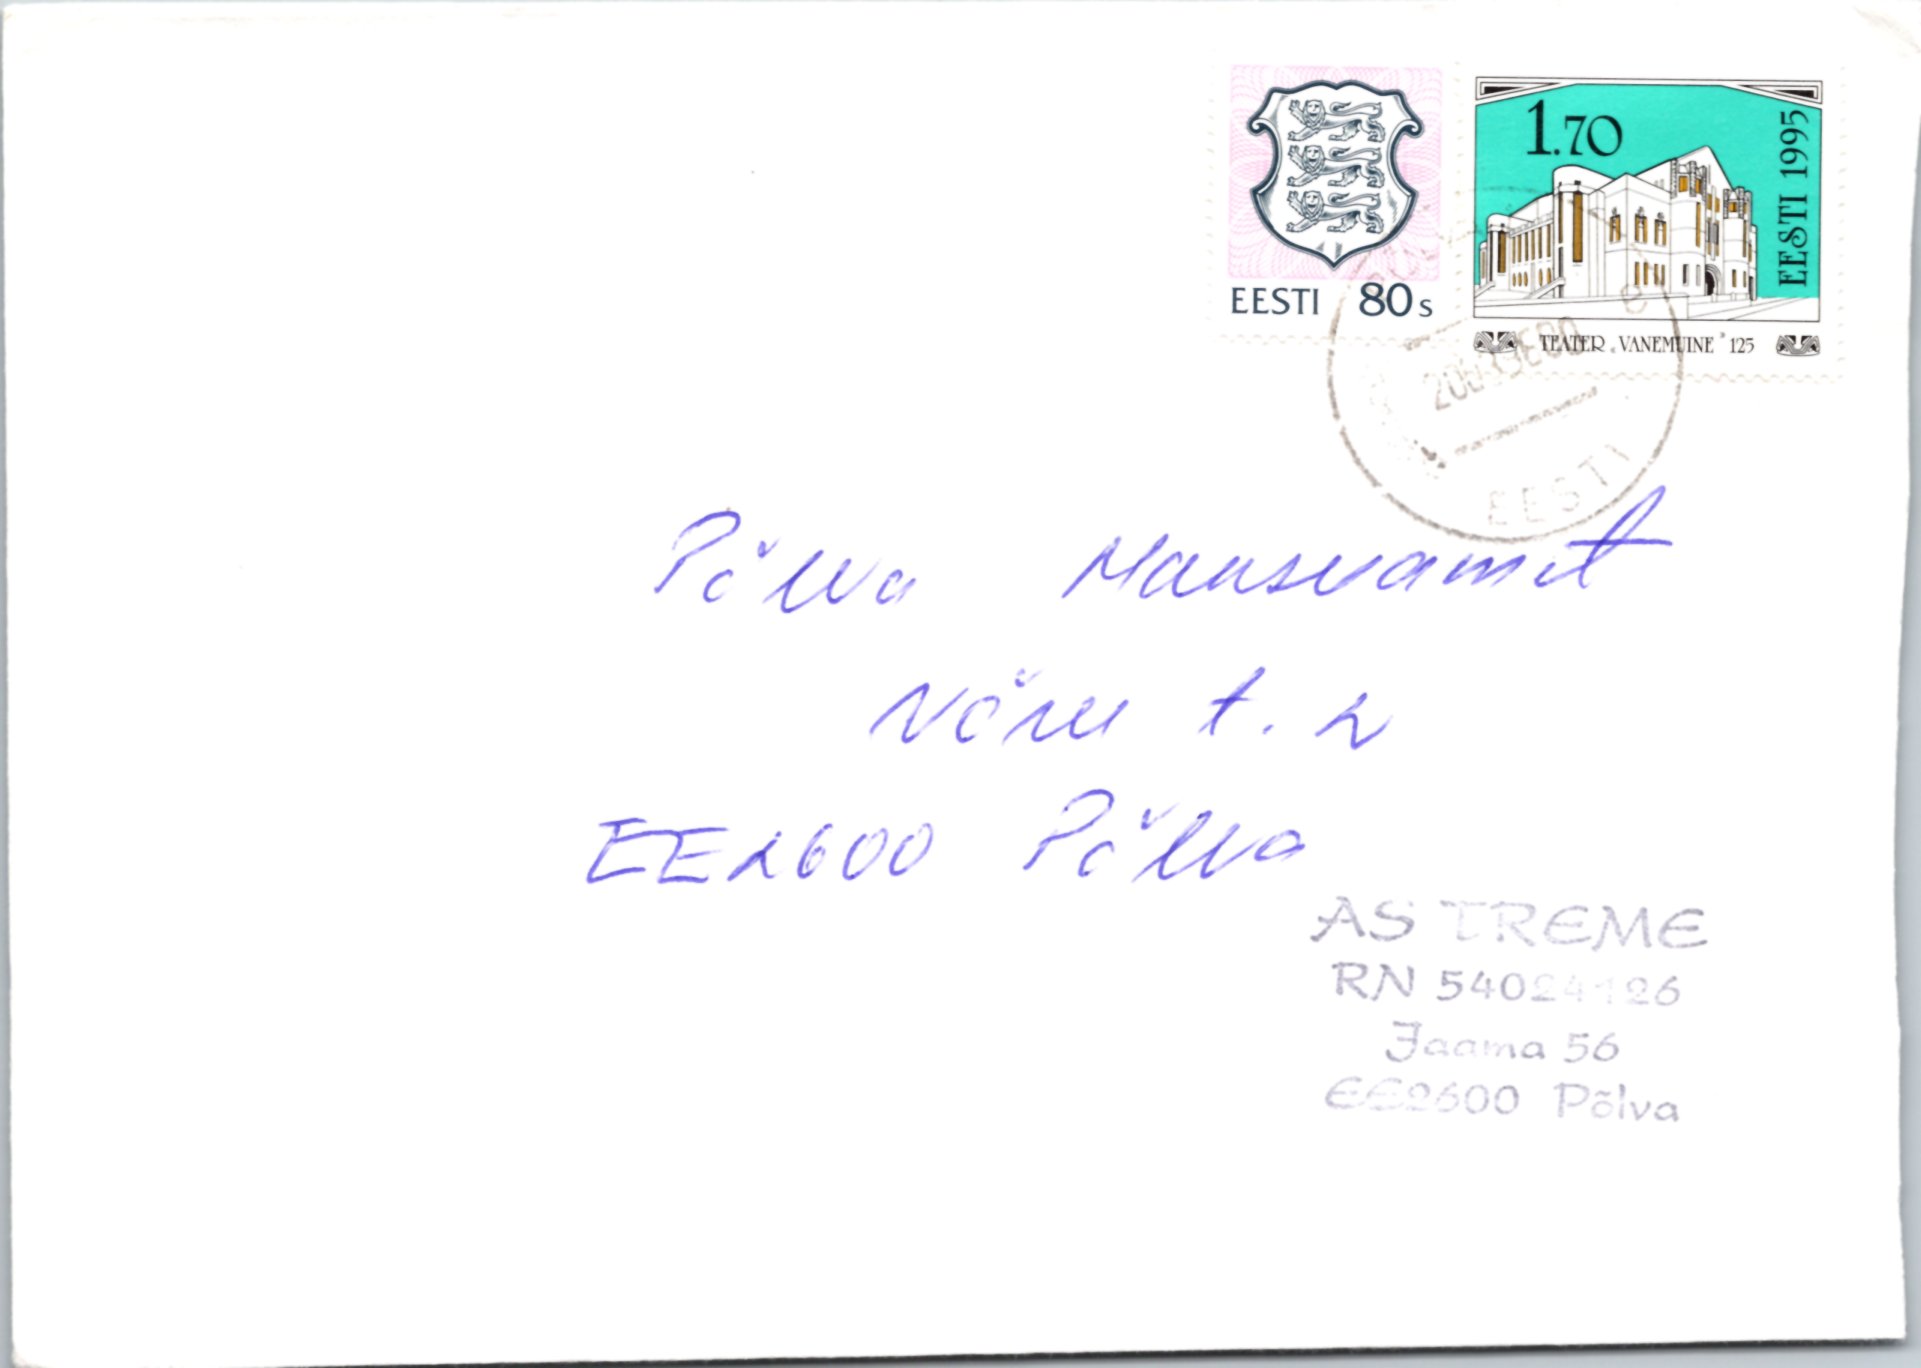 EESTI 80 s
1.70
EESTI 1995
TEATER „VANEMUINE" 125
EESTI
Põlva Maksuamet
Võru t. 2
EE2600 Põlva
AS TREME
RN 54024126
Jaama 56
EE2600 Põlva